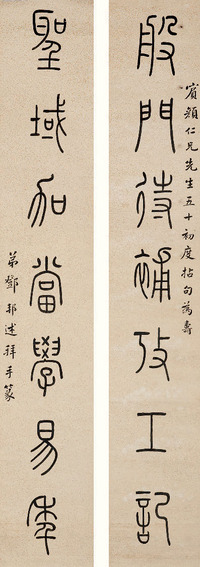 賓顏仁兄先生五十初度拈句為壽
般門待補攷工記
聖域加當學易年
弟鄧邦述拜手篆